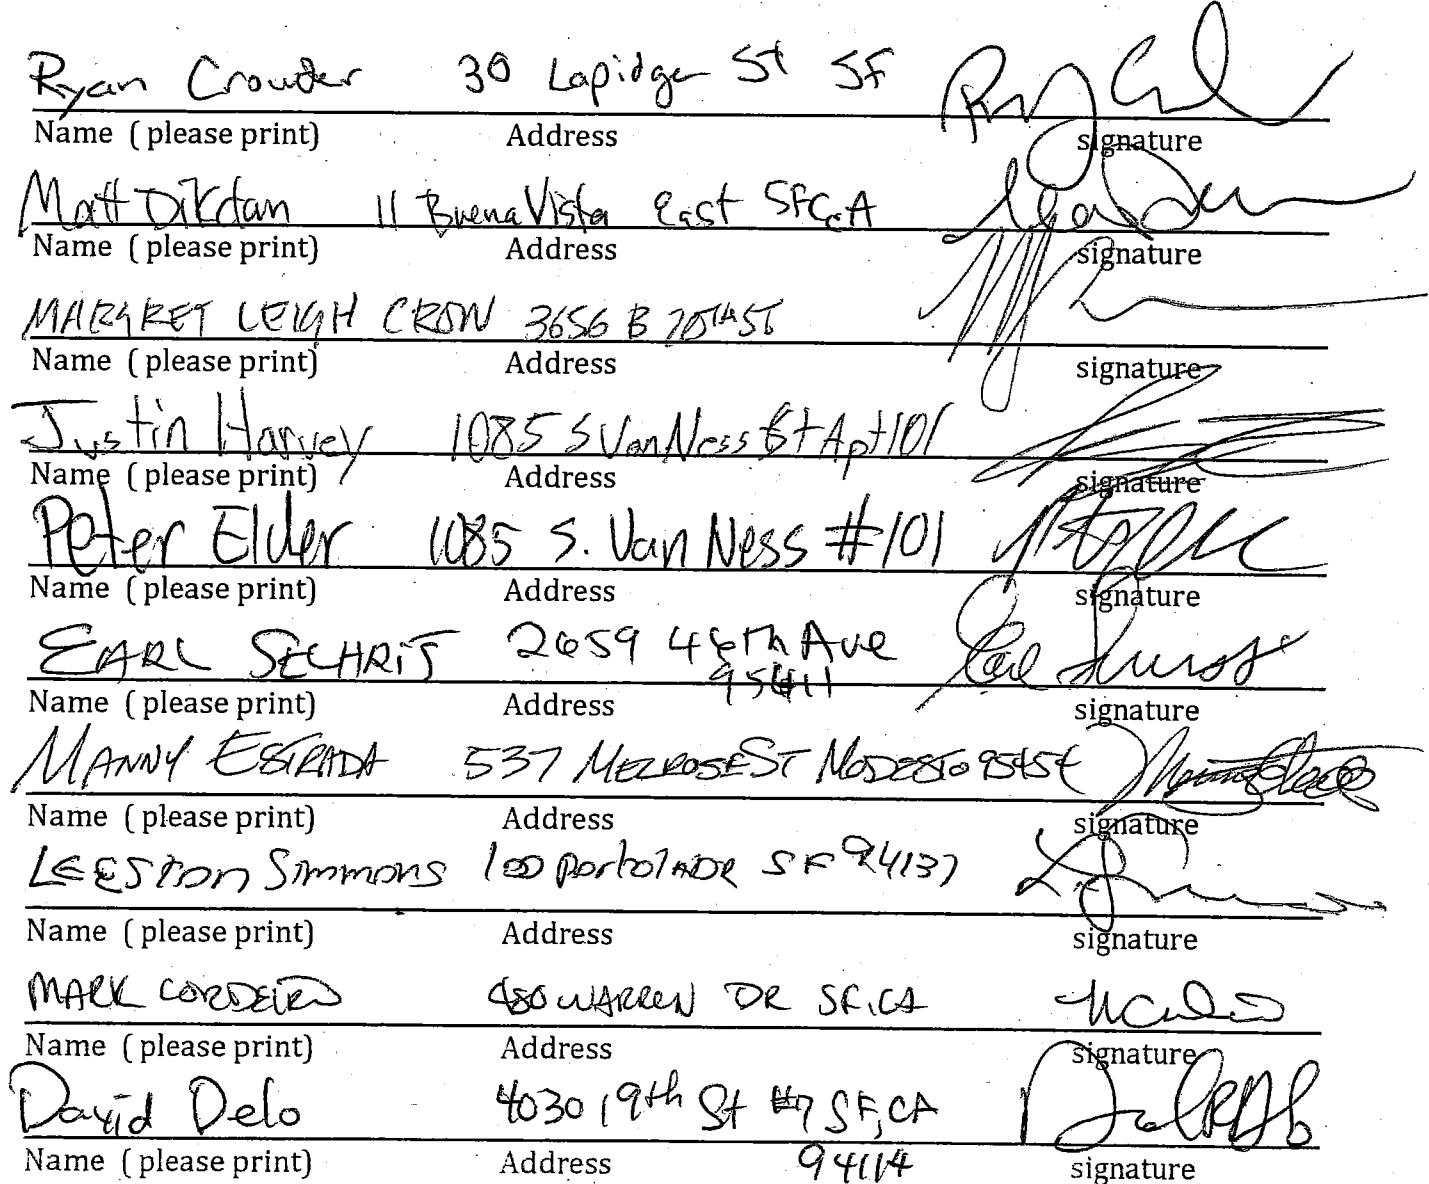 Ryan Crowder 30 Lapidge St SF
Name ( please print) Address signature
Matt Dikdan 11 Buena Vista East SF CA
Name ( please print) Address signature
MARGRET LEIGH CROW 3656 B 20TH ST
Name ( please print) Address signature
Justin Harvey 1085 S Van Ness St Apt 101
Name ( please print) Address signature
Peter Elder 1085 S. Van Ness #101
Name ( please print) Address signature
EARL SECHRIST 2659 46th Ave
95411
Name ( please print) Address signature
MANNY ESTRADA 537 MELROSE ST MODESTO 95454
Name ( please print) Address signature
LEESTON Simmons 100 Portola DR SF 94137
Name ( please print) Address signature
MARK CORDEIRO 480 WARREN DR SF, CA
Name ( please print) Address signature
David Delo 4030 19th St #7 SF, CA
94114
Name ( please print) Address signature